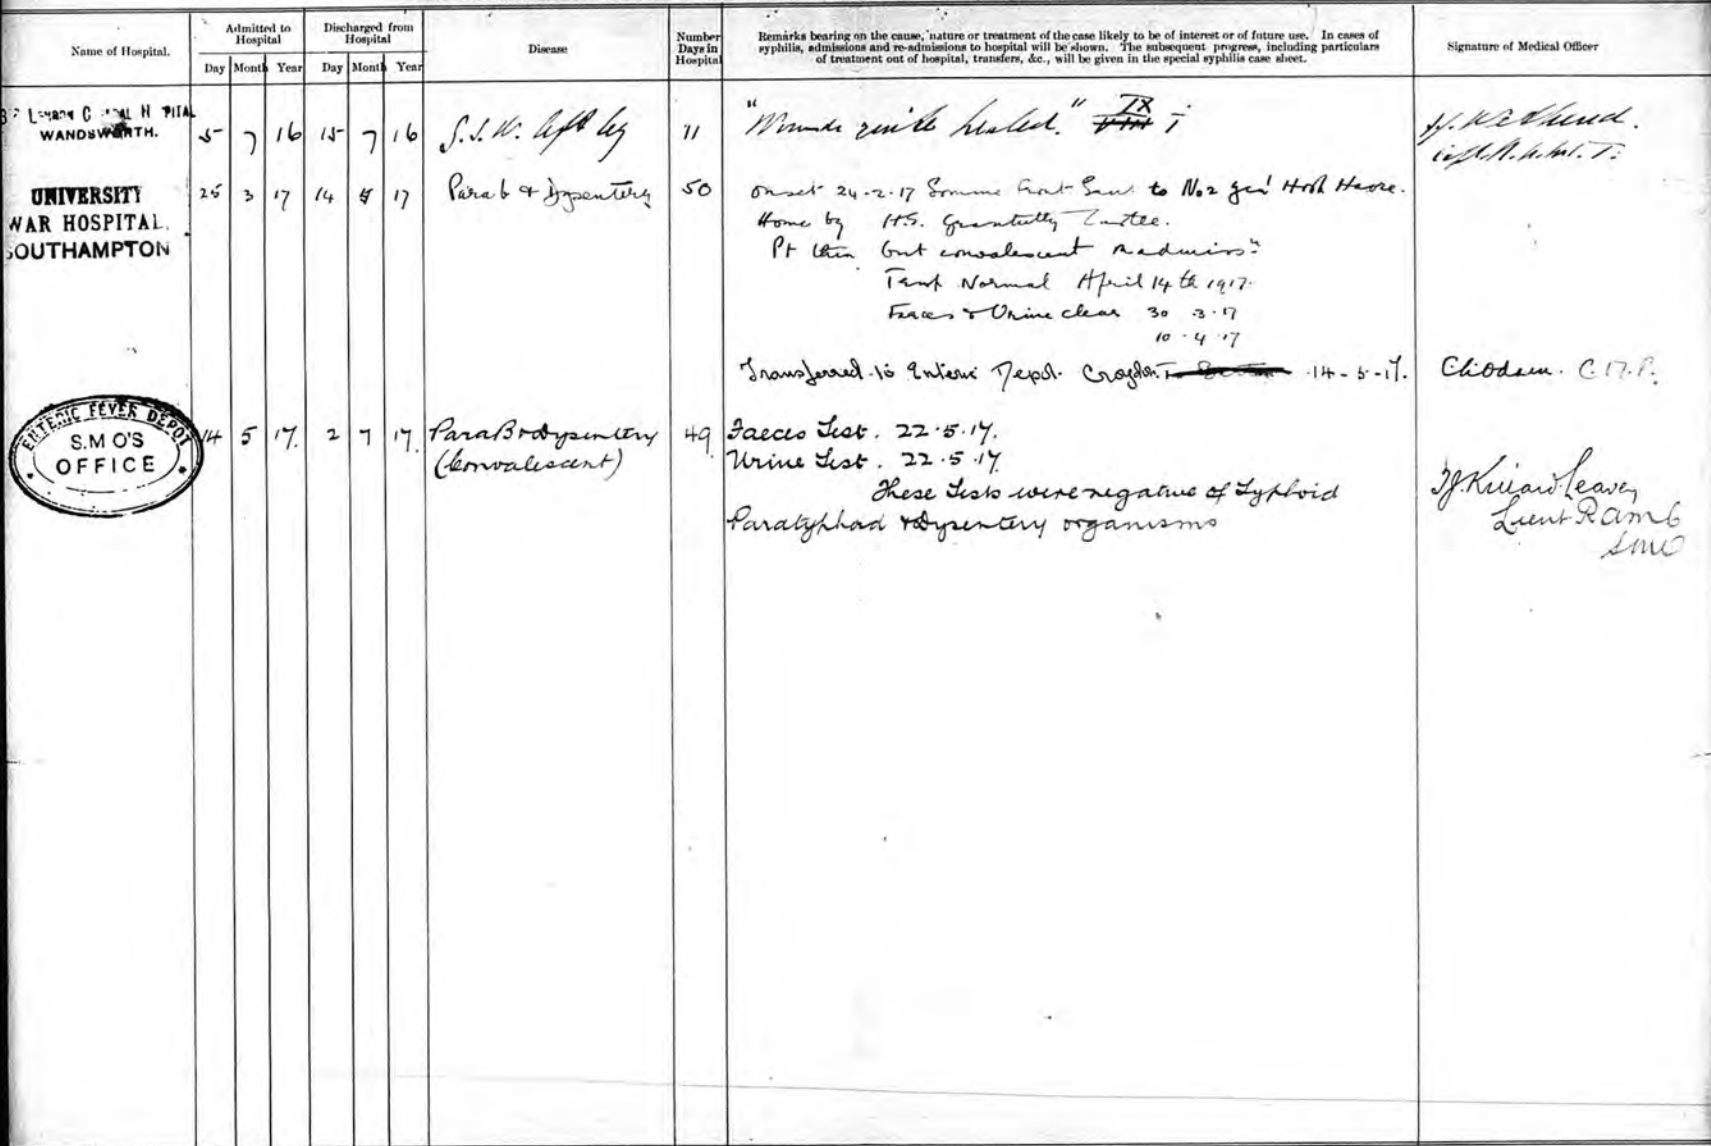 Name of Hospital.
Admitted to Hospital
Discharged from Hospital
Disease
Number Days in Hospital
Remarks bearing on the cause, nature or treatment of the case likely to be of interest or of future use. In cases of
syphilis, admissions and re-admissions to hospital will be shown. The subsequent progress, including particulars
of treatment out of hospital, transfers, &c., will be given in the special syphilis case sheet.
Signature of Medical Officer
Day Month Year Day Month Year
WANDSWORTH.
5 7 16 15 7 16 left leg 11 "Wounds quite healed." IX
UNIVERSITY
WAR HOSPITAL,
SOUTHAMPTON
25 3 17 14 5 17 Para b & Dysentery 50 onset 24-2-17 Somme front to No 2 Gen Hosp Havre.
Home by H.S.
Pt thin but convalescent
Temp Normal April 14th 1917.
Faeces & Urine clear 30.3.17
10.4.17
Transferred to Enteric Depot. Croydon 14-5-17.
ENTERIC FEVER DEPOT
S.M O'S
OFFICE
14 5 17. 2 7 17 Para B & dysentery 49 Faeces Test. 22.5.17.
(Convalescent) Urine Test. 22.5.17
These Tests were negative of Typhoid
Paratyphoid & dysentery organisms
Lieut RAMC
SMO